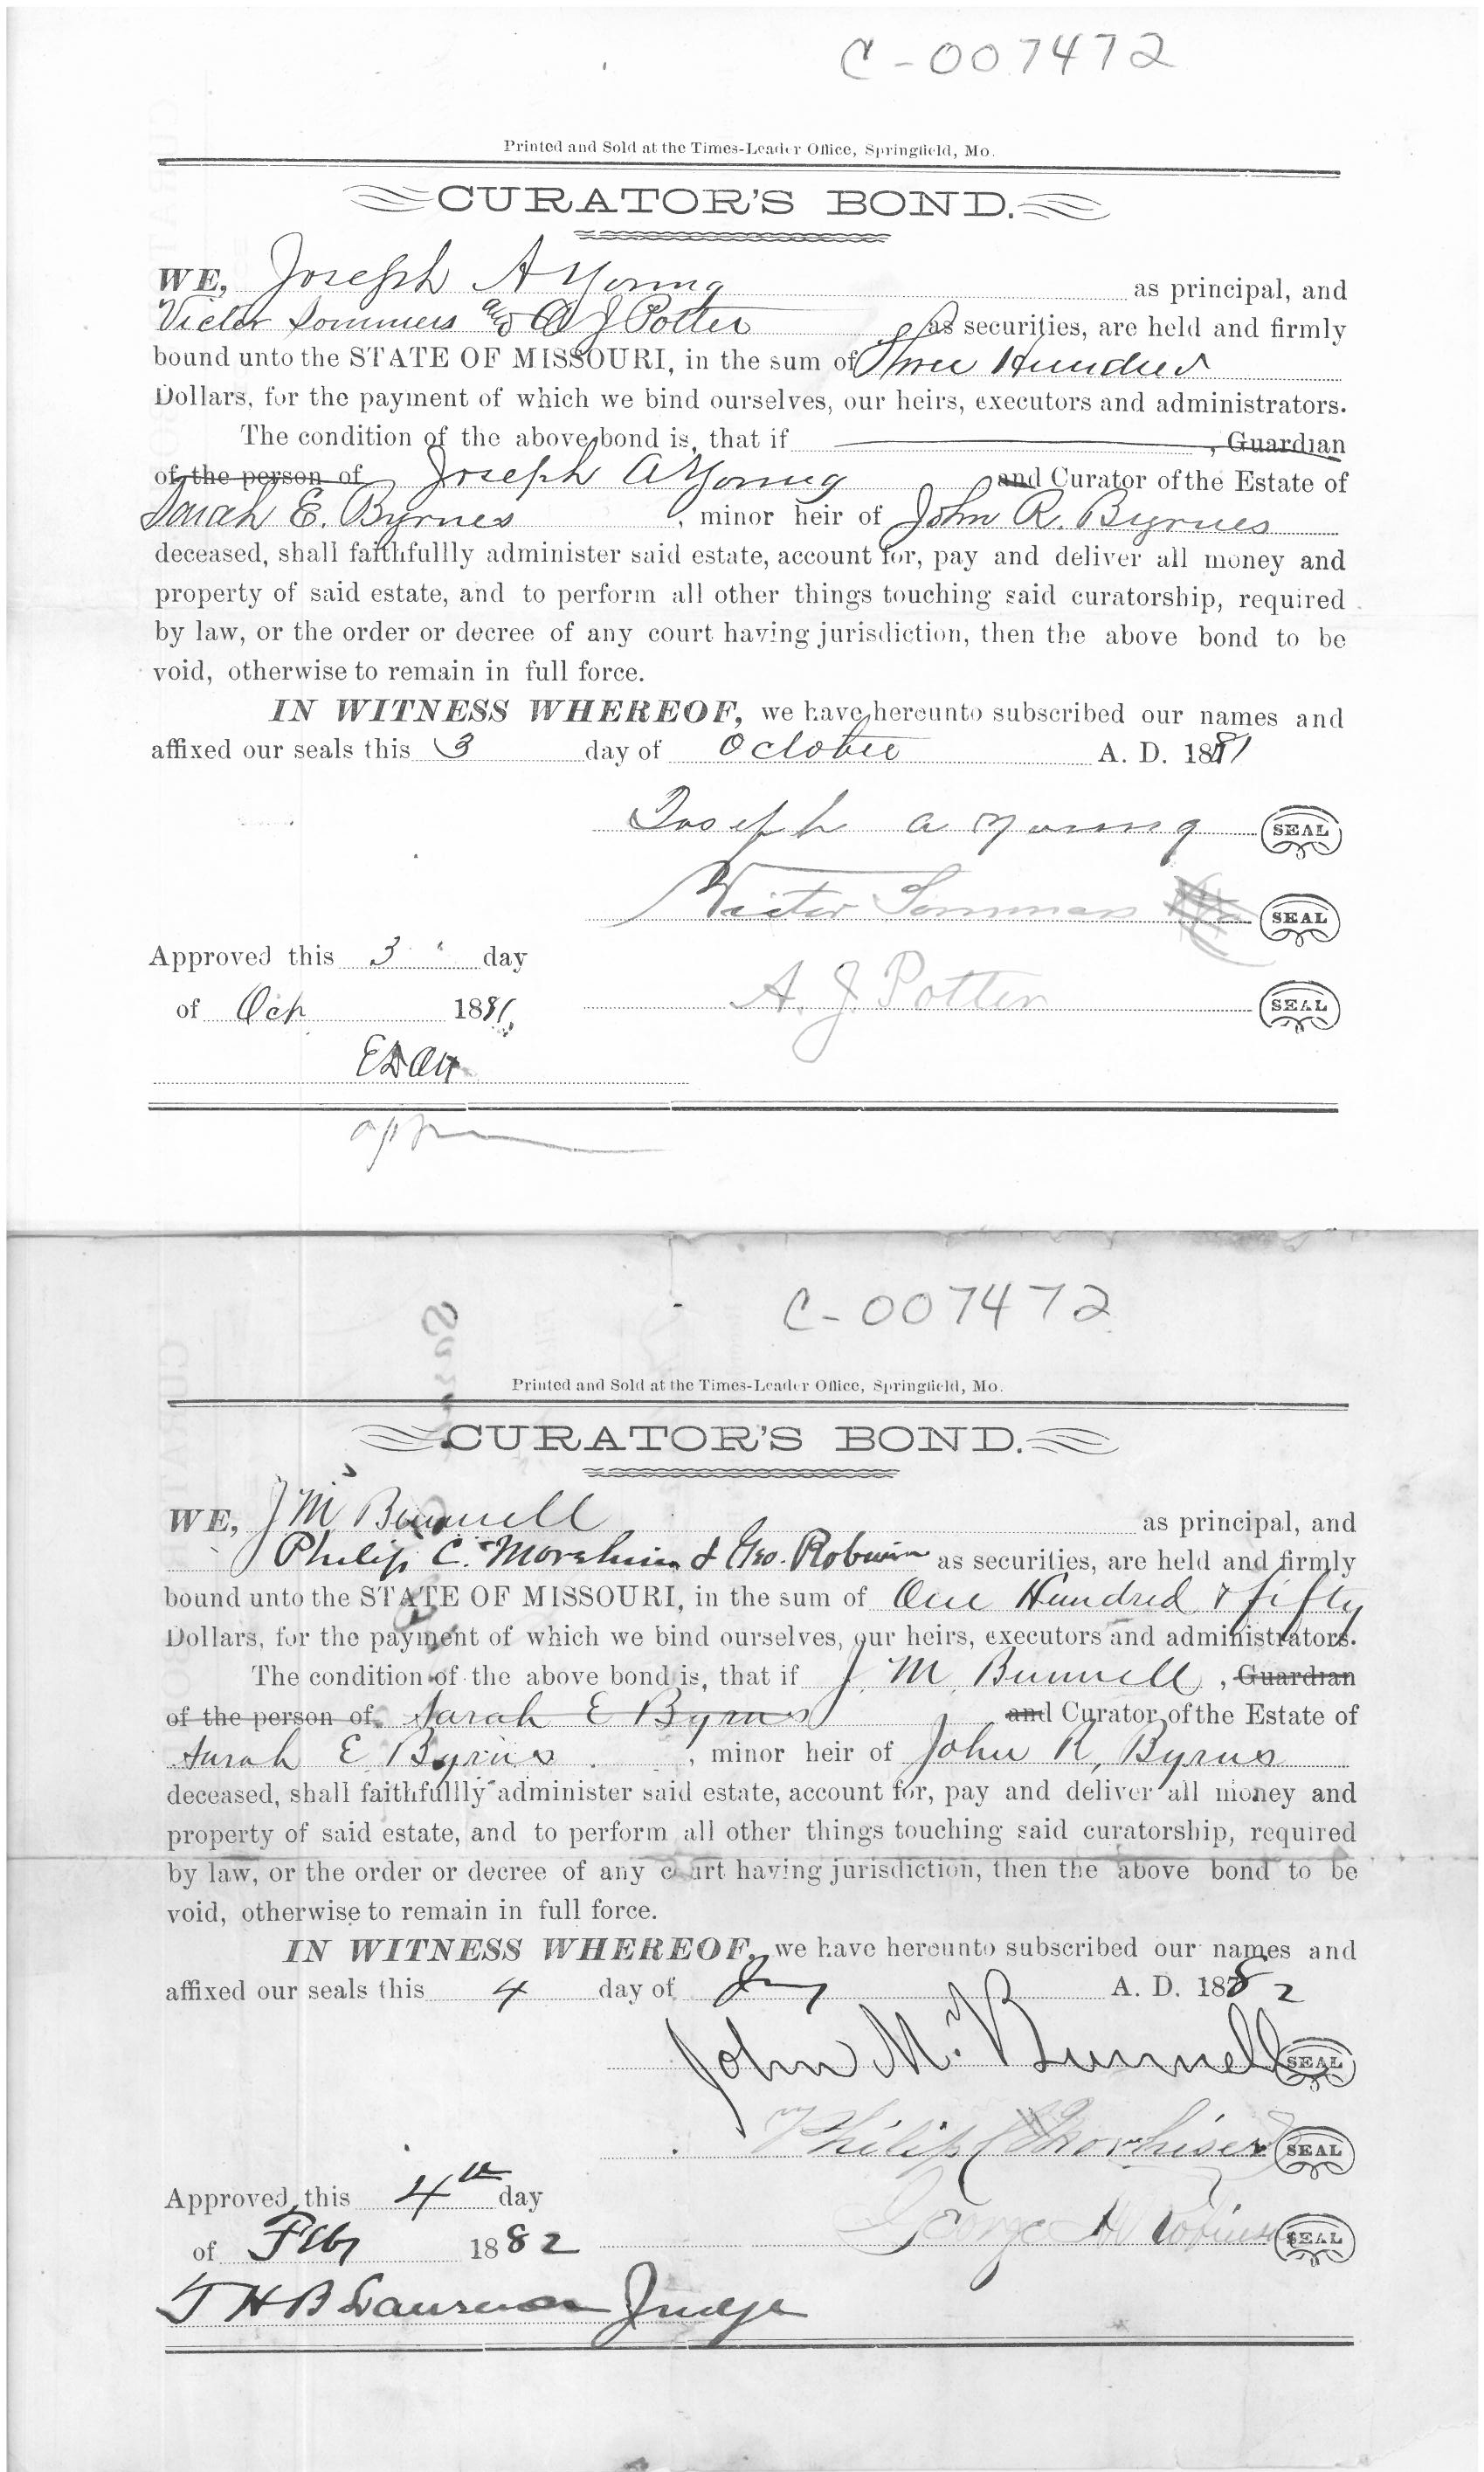 C-007472
Printed and Sold at the Times-Leader Office, Springfield, Mo.
CURATOR'S BOND.
WE, Joseph A Young as principal, and
Victor Sommers and A J Potter as securities, are held and firmly
bound unto the STATE OF MISSOURI, in the sum of Three Hundred
Dollars, for the payment of which we bind ourselves, our heirs, executors and administrators.
The condition of the above bond is, that if , Guardian
of the person of Joseph A Young and Curator of the Estate of
Sarah E. Byrnes , minor heir of John R. Byrnes
deceased, shall faithfullly administer said estate, account for, pay and deliver all money and
property of said estate, and to perform all other things touching said curatorship, required
by law, or the order or decree of any court having jurisdiction, then the above bond to be
void, otherwise to remain in full force.
IN WITNESS WHEREOF, we have hereunto subscribed our names and
affixed our seals this 3 day of October A. D. 1881
Joseph a Young SEAL
Victor Sommers SEAL
Approved this 3 day
A. J. Potter SEAL
of Oct 1881
C-007472
Printed and Sold at the Times-Leader Office, Springfield, Mo.
CURATOR'S BOND.
WE, J M Bunnell as principal, and
Philip C. Morhiser & Geo. Robinson as securities, are held and firmly
bound unto the STATE OF MISSOURI, in the sum of One Hundred & fifty
Dollars, for the payment of which we bind ourselves, our heirs, executors and administrators.
The condition of the above bond is, that if J. M. Bunnell , Guardian
of the person of Sarah E Byrns and Curator of the Estate of
Sarah E Byrns , minor heir of John R. Byrns
deceased, shall faithfullly administer said estate, account for, pay and deliver all money and
property of said estate, and to perform all other things touching said curatorship, required
by law, or the order or decree of any court having jurisdiction, then the above bond to be
void, otherwise to remain in full force.
IN WITNESS WHEREOF, we have hereunto subscribed our names and
affixed our seals this 4 day of A. D. 1882
John M. Bunnell SEAL
Philip C Morhiser SEAL
Approved this 4th day
George Robinson SEAL
of Feb 1882
T H B Lawrence Judge